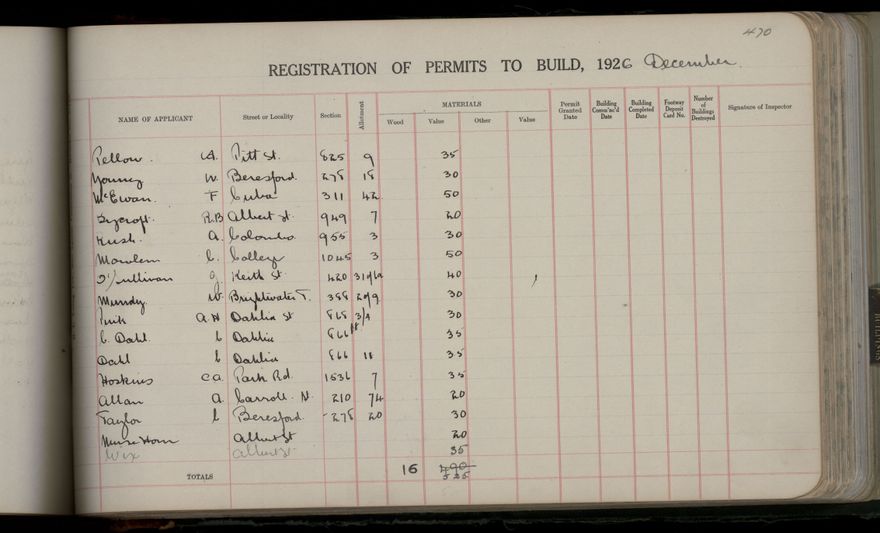 470
REGISTRATION OF PERMITS TO BUILD, 1926 December
NAME OF APPLICANT Street or Locality Section Allotment MATERIALS Permit Granted Date Building Comm'nc'd Date Building Completed Date Footway Deposit Card No. Number of Buildings Destroyed Signature of Inspector
Wood Value Other Value
Pellow. A. Pitt St. 825 9 35
Young W. Beresford. 278 18 30
McEwan. F Cuba 311 42 50
R.B Albert St. 949 7 20
Rush. A. Colombo. 955 3 30
Mowlem C. College 1045 3 50
O'Sullivan J. Keith St. 420 40
Munday W. Brightwater T. 388 20/9 30
A H Dahlia St 868 3/4 30
C. Dahl C Dahlia 866 35
Dahl C Dahlia 866 11 35
Hoskins C A. Park Rd. 1536 7 35
Allan A. Carroll. N. 210 74 20
Taylor C Beresford. 278 20 30
Albert St 20
Wix Albert St. 35
TOTALS 16 490
525